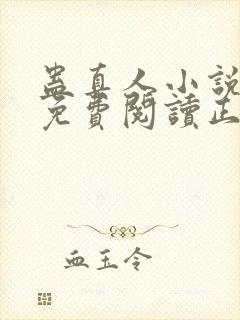 蛊真人小說
免費閱讀正
血玉令